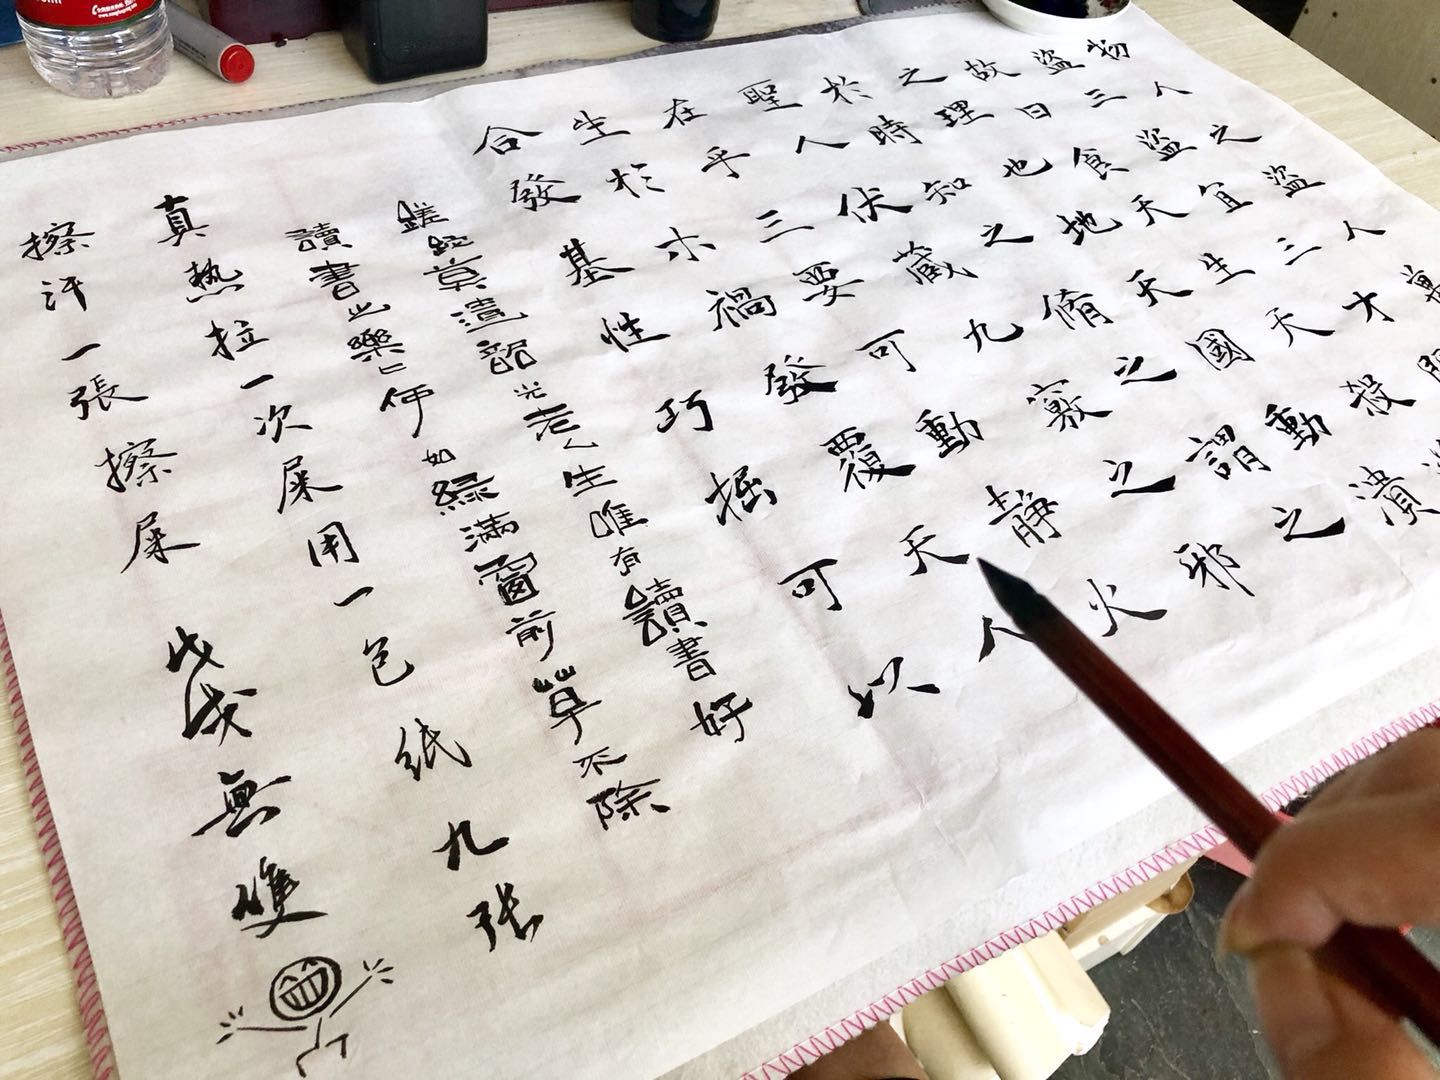 物人之盜人萬
盜三盜宜三才
故日食天生天殺
之理也地天國動潰
於時知之脩之謂之
聖人伏藏九竅之邪
在乎三要可動靜火
生於木禍發覆天人
合發基性巧掘可以
蹉跎莫遣韶光老人生唯有讀書好
讀書之樂〻何如綠滿窗前草不除
真熱拉一次屎用一包紙九张
擦汗一張擦屎
無雙